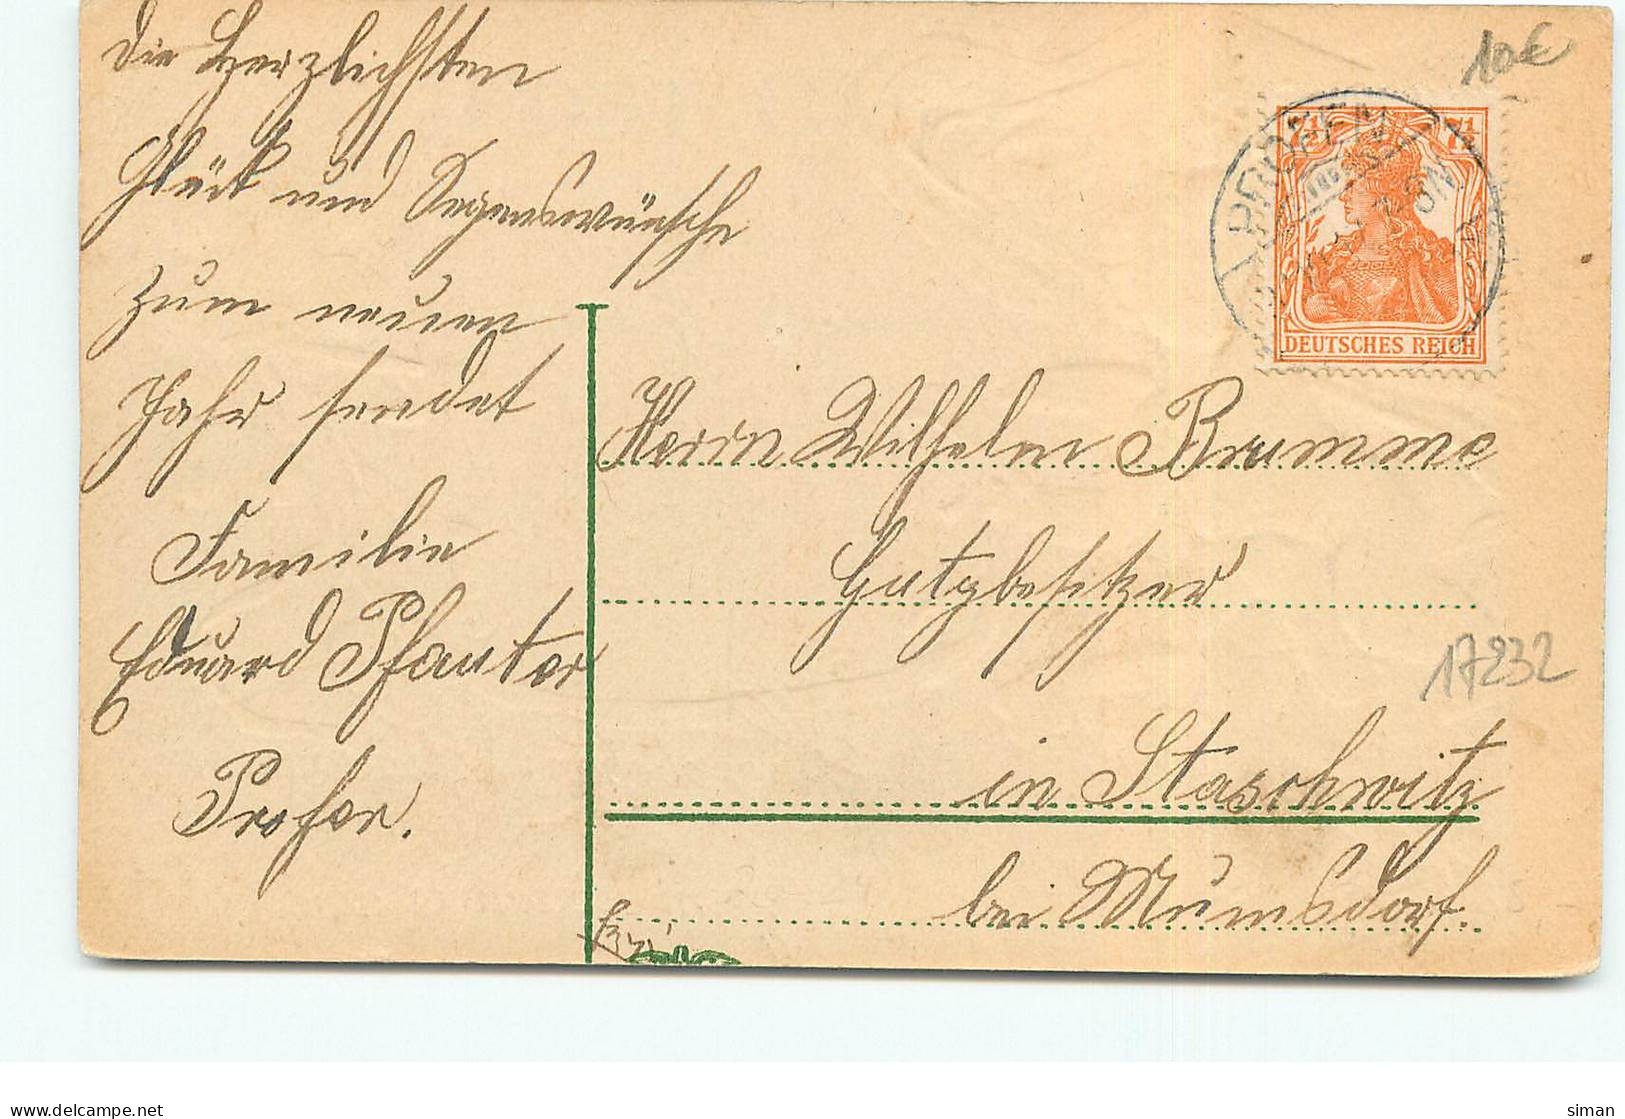 Die Herzlichsten
Glück und Segenswünsche
zum neuen
Jahr sendet
Familie
Eduard Pfauter
Profen.
10€
PROFEN
7½ 7½
DEUTSCHES REICH
Herrn Wilhelm Brumme
Gutzbesitzer
17232
in Staschwitz
bei Mumsdorf.
delcampe.net
siman